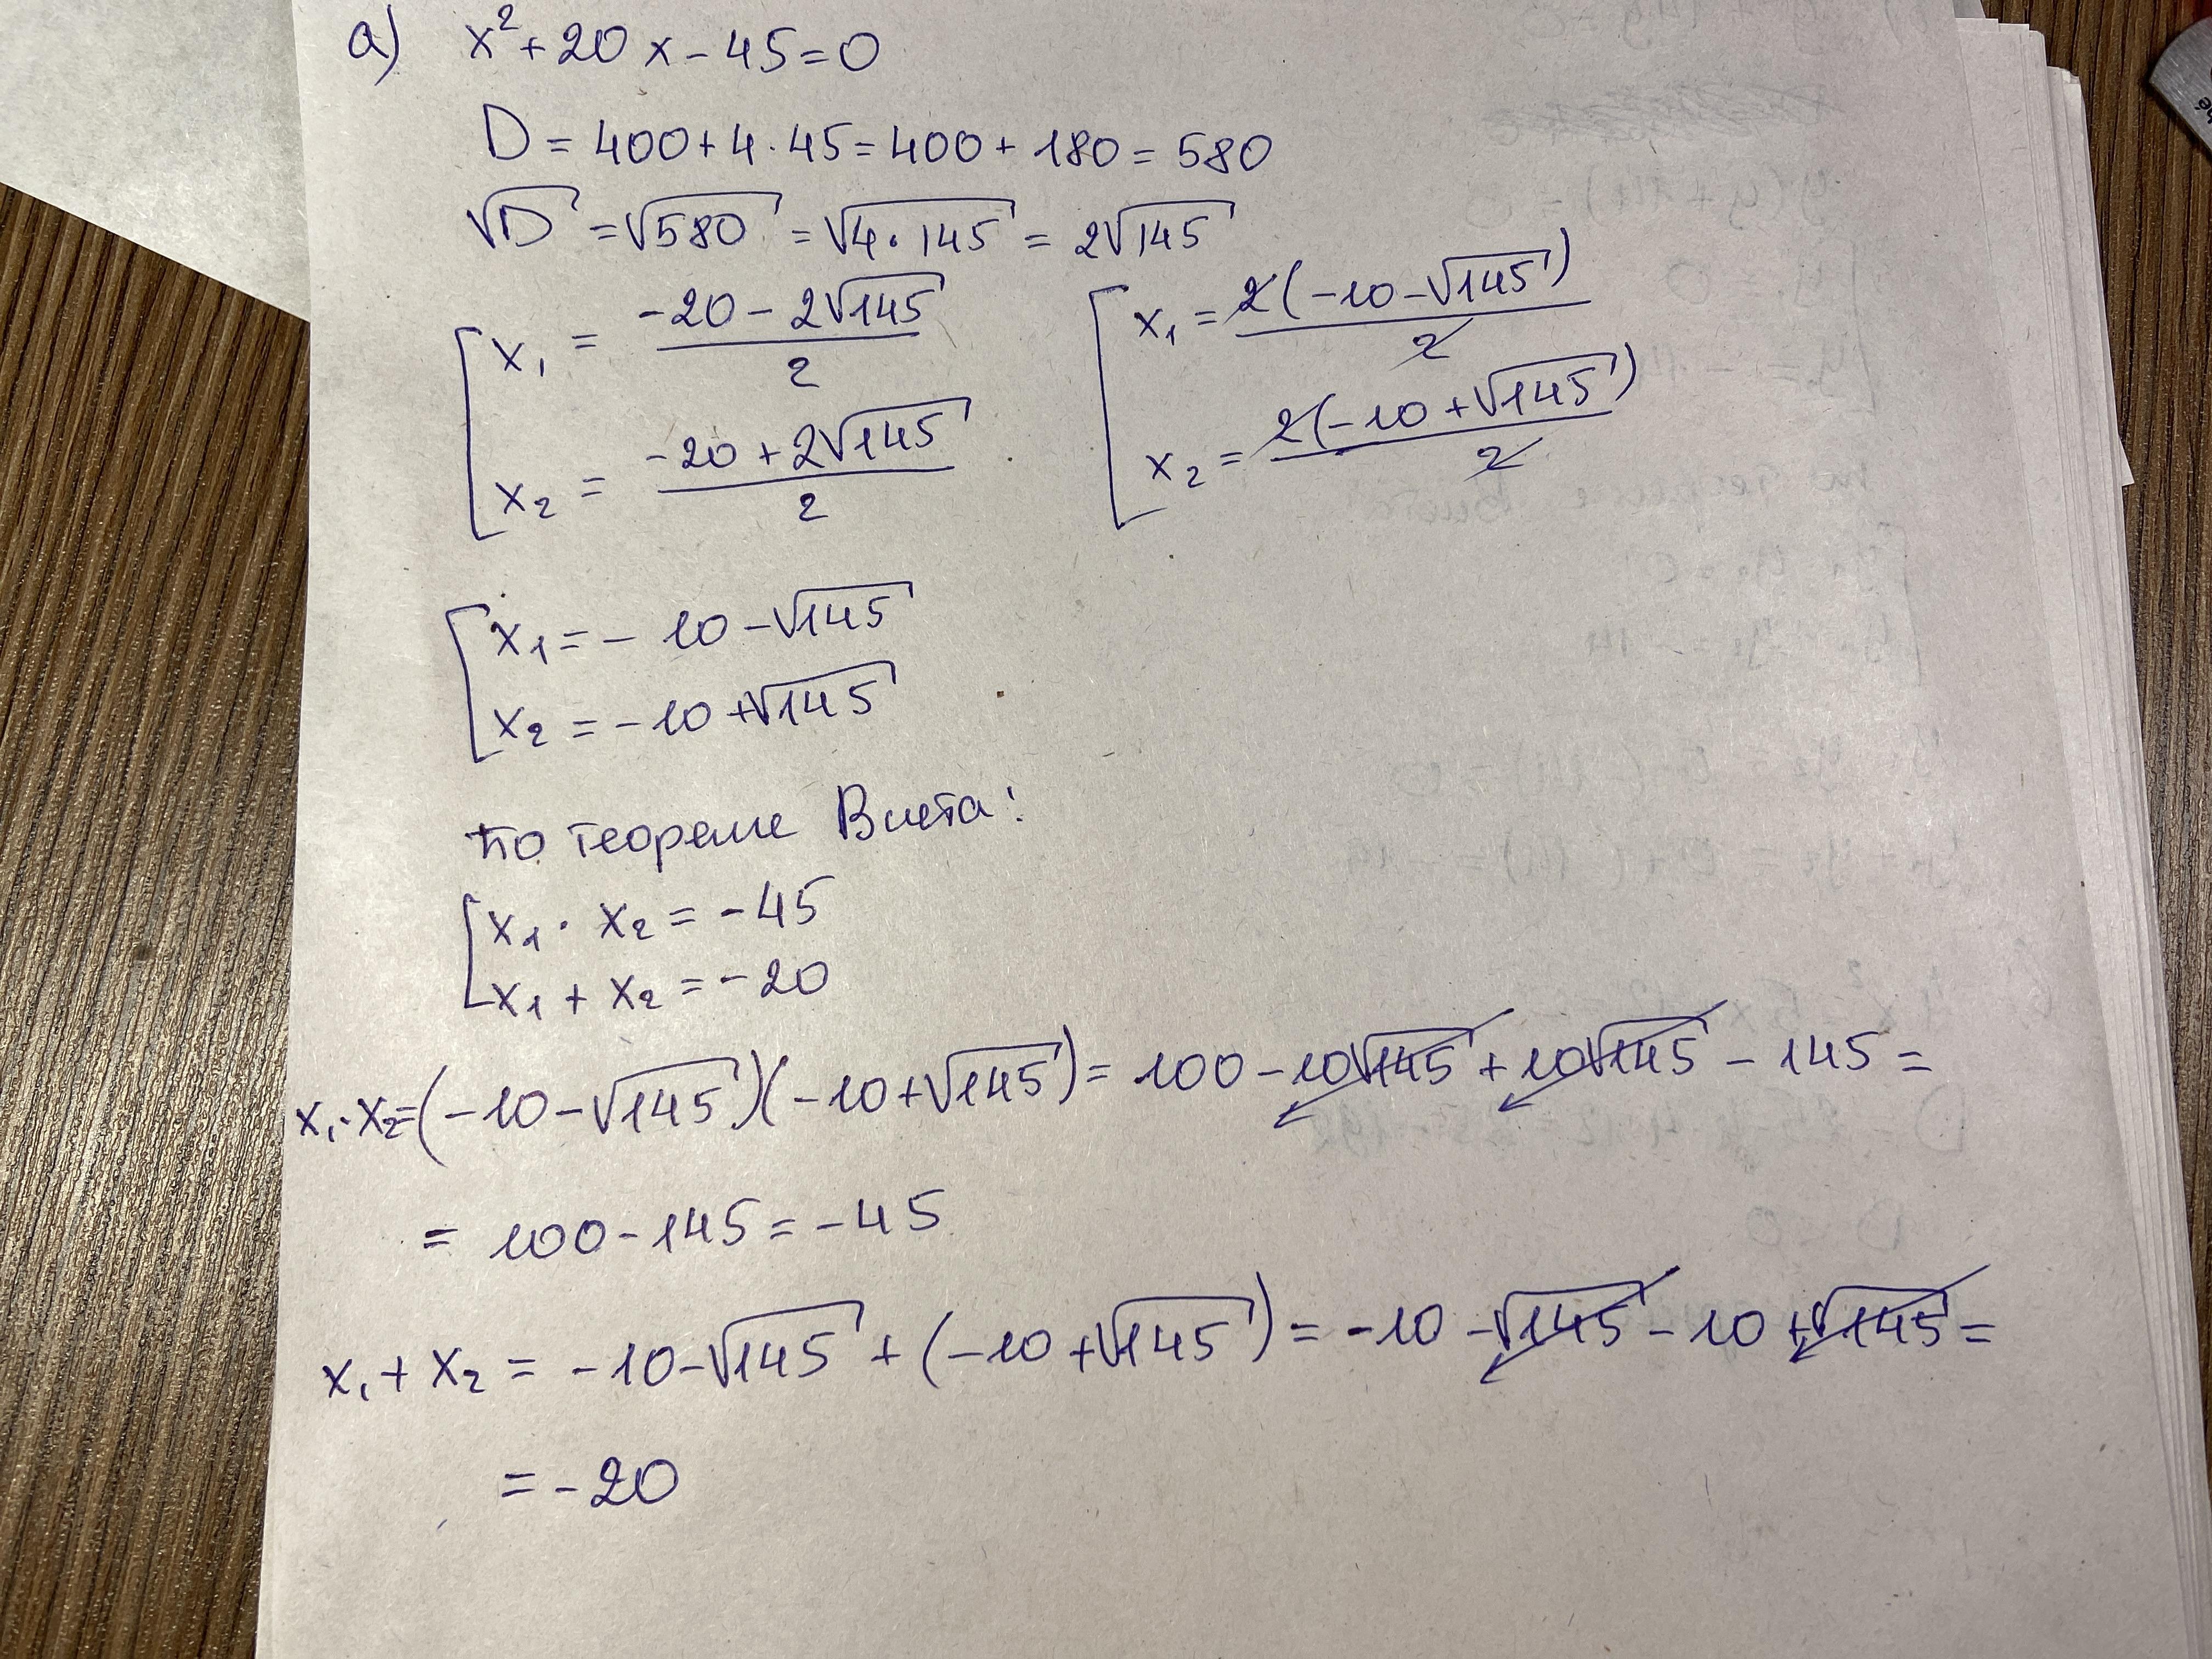 а) x² + 20x - 45 = 0
D = 400 + 4 · 45 = 400 + 180 = 580
√D = √580 = √4·145 = 2√145
x₁ = (-20 - 2√145)/2
x₂ = (-20 + 2√145)/2
x₁ = 2(-10 - √145)/2
x₂ = 2(-10 + √145)/2
x₁ = -10 - √145
x₂ = -10 + √145
по теореме Виета:
x₁ · x₂ = -45
x₁ + x₂ = -20
x₁ · x₂ = (-10 - √145)(-10 + √145) = 100 - 10√145 + 10√145 - 145 =
= 100 - 145 = -45
x₁ + x₂ = -10 - √145 + (-10 + √145) = -10 - √145 - 10 + √145 =
= -20